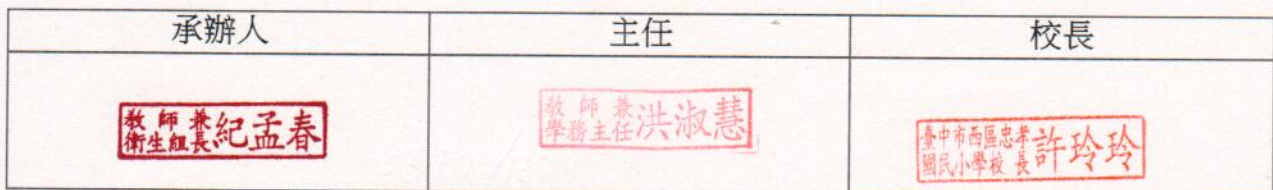 承辦人
主任
校長
教師兼
衛生組長紀孟春
教師兼
學務主任洪淑慧
臺中市西區忠孝
國民小學校長許玲玲